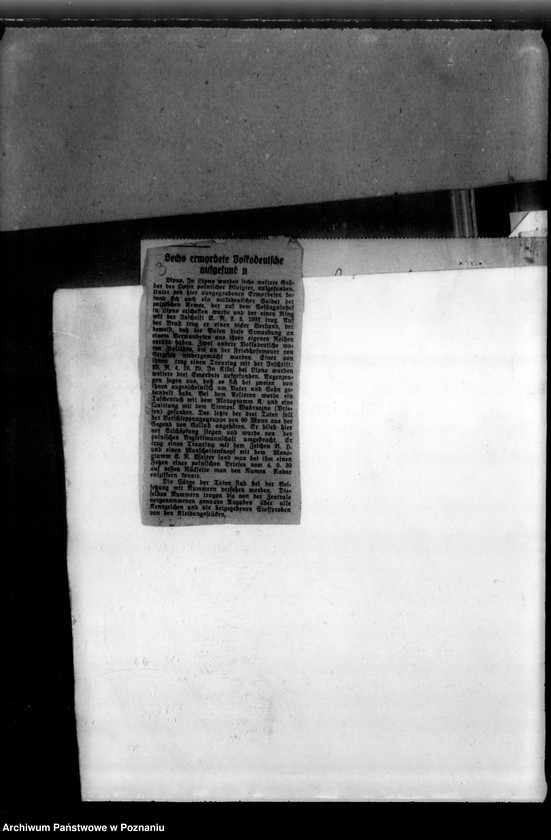 3
Sechs ermordete Volksdeutsche
aufgefund n
Lipno. In Lipno wurden sechs weitere Grä-
ber der Opfer polnischer Blutgier, aufgefunden.
Unter den hier ausgegrabenen Ermordeten be-
fand sich auch ein volksdeutscher Soldat der
polnischen Armee, der auf dem Gefängnishof
in Lipno erschossen wurde und der einen Ring
mit der Inschrift E. R. 2. 5. 1932 trug. Auf
der Brust trug er einen dicken Verband, der
beweist, daß die Polen diese Ermordung an
einem Verwundeten aus ihren eigenen Reihen
verübt haben. Zwei andere Volksdeutsche wa-
ren Zivilisten, die an der Friedhofsmauer von
wurden. Einer von
ihnen trug einen Trauring mit der Inschrift:
W. R. 4. 10. 29. In Kikol bei Lipno wurden
weitere drei Ermordete aufgefunden. Augenzeu-
gen sagen aus, daß es sich bei zweien von
ihnen augenscheinlich um Vater und Sohn ge-
handelt habe. Bei dem Aelteren wurde ein
Taschentuch mit dem Monogramm K. und eine
Quittung mit dem Stempel Wabrzezno (Brie-
sen) gefunden. Der letzte der drei Toten soll
der Verschleppungsgruppe von 80 Mann aus der
Gegend von Gollub angehören. Er blieb hier
vor Erschöpfung liegen und wurde von der
polnischen Begleitmannschaft umgebracht. Er
trug einen Trauring mit dem Zeichen B. H.
und einen Manschettenknopf mit dem Mono-
gramm E. R. Weiter fand man bei ihm einen
Fetzen eines polnischen Briefes vom 4. 9. 39
auf dessen Rückseite man den Namen
entziffern konnte.
Die Särge der Toten sind bei der Bei-
setzung mit Nummern versehen worden. Die-
selben Nummern tragen die von der Zentrale
vorgenommenen genauen Angaben über alle
Kennzeichen und die beigegebenen Stoffproben
von den Kleidungsstücken.
Archiwum Państwowe w Poznaniu